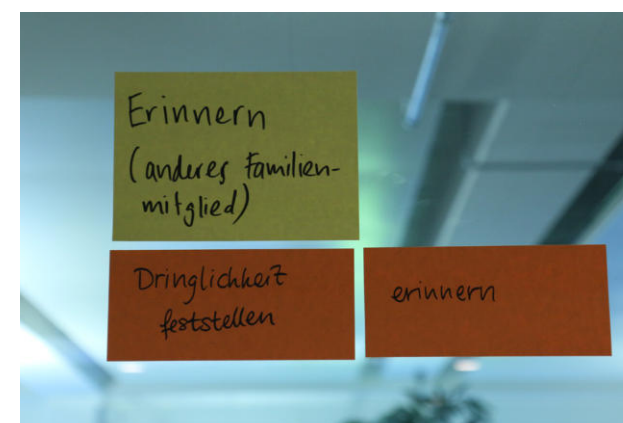 Erinnern
(anderes Familien-
mitglied)
Dringlichkeit
feststellen
erinnern